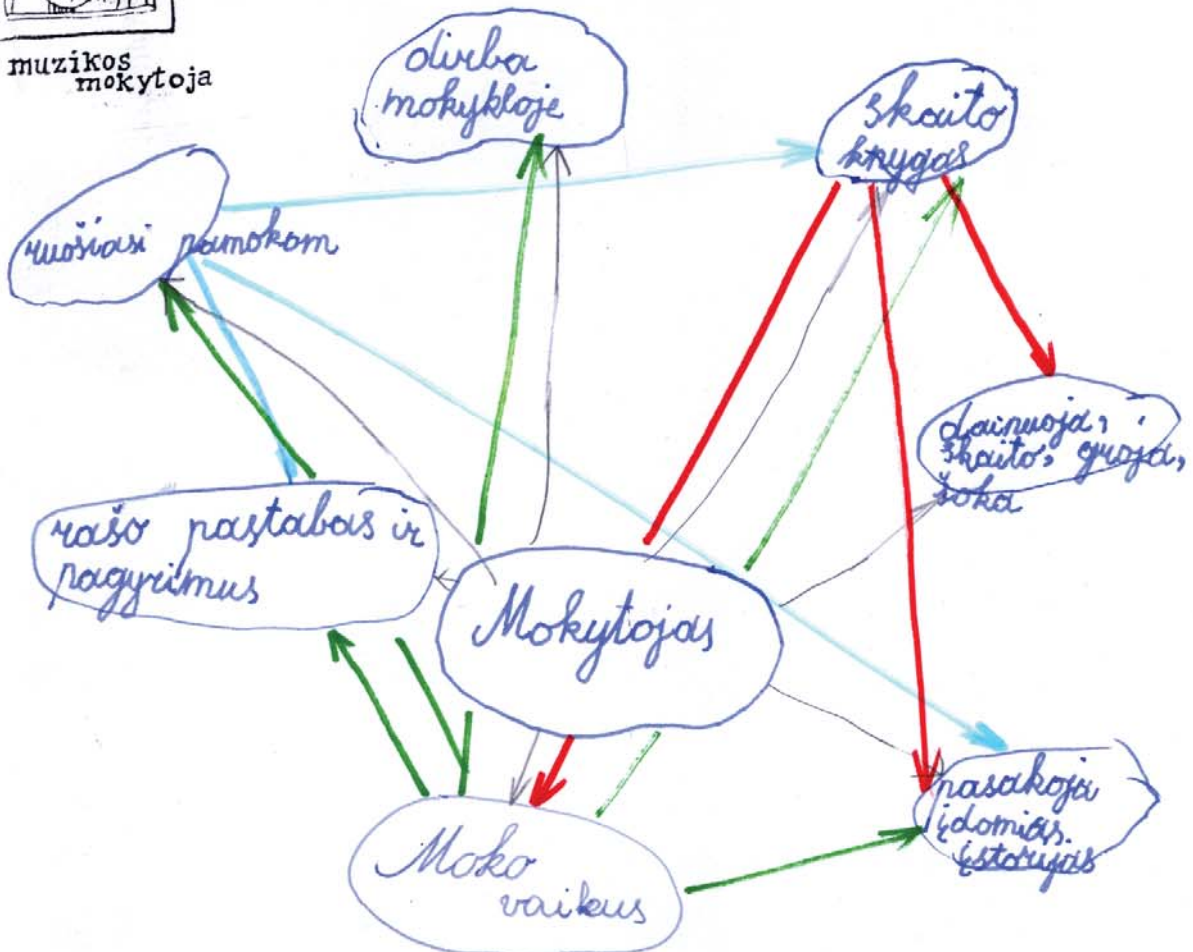 muzikos
mokytoja
dirba
mokykloje
skaito
knygas
ruošiasi pamokom
dainuoja,
skaito, groja,
šoka
rašo pastabas ir
pagyrimus
Mokytojas
pasakoja
įdomias
istorijas
Moko
vaikus